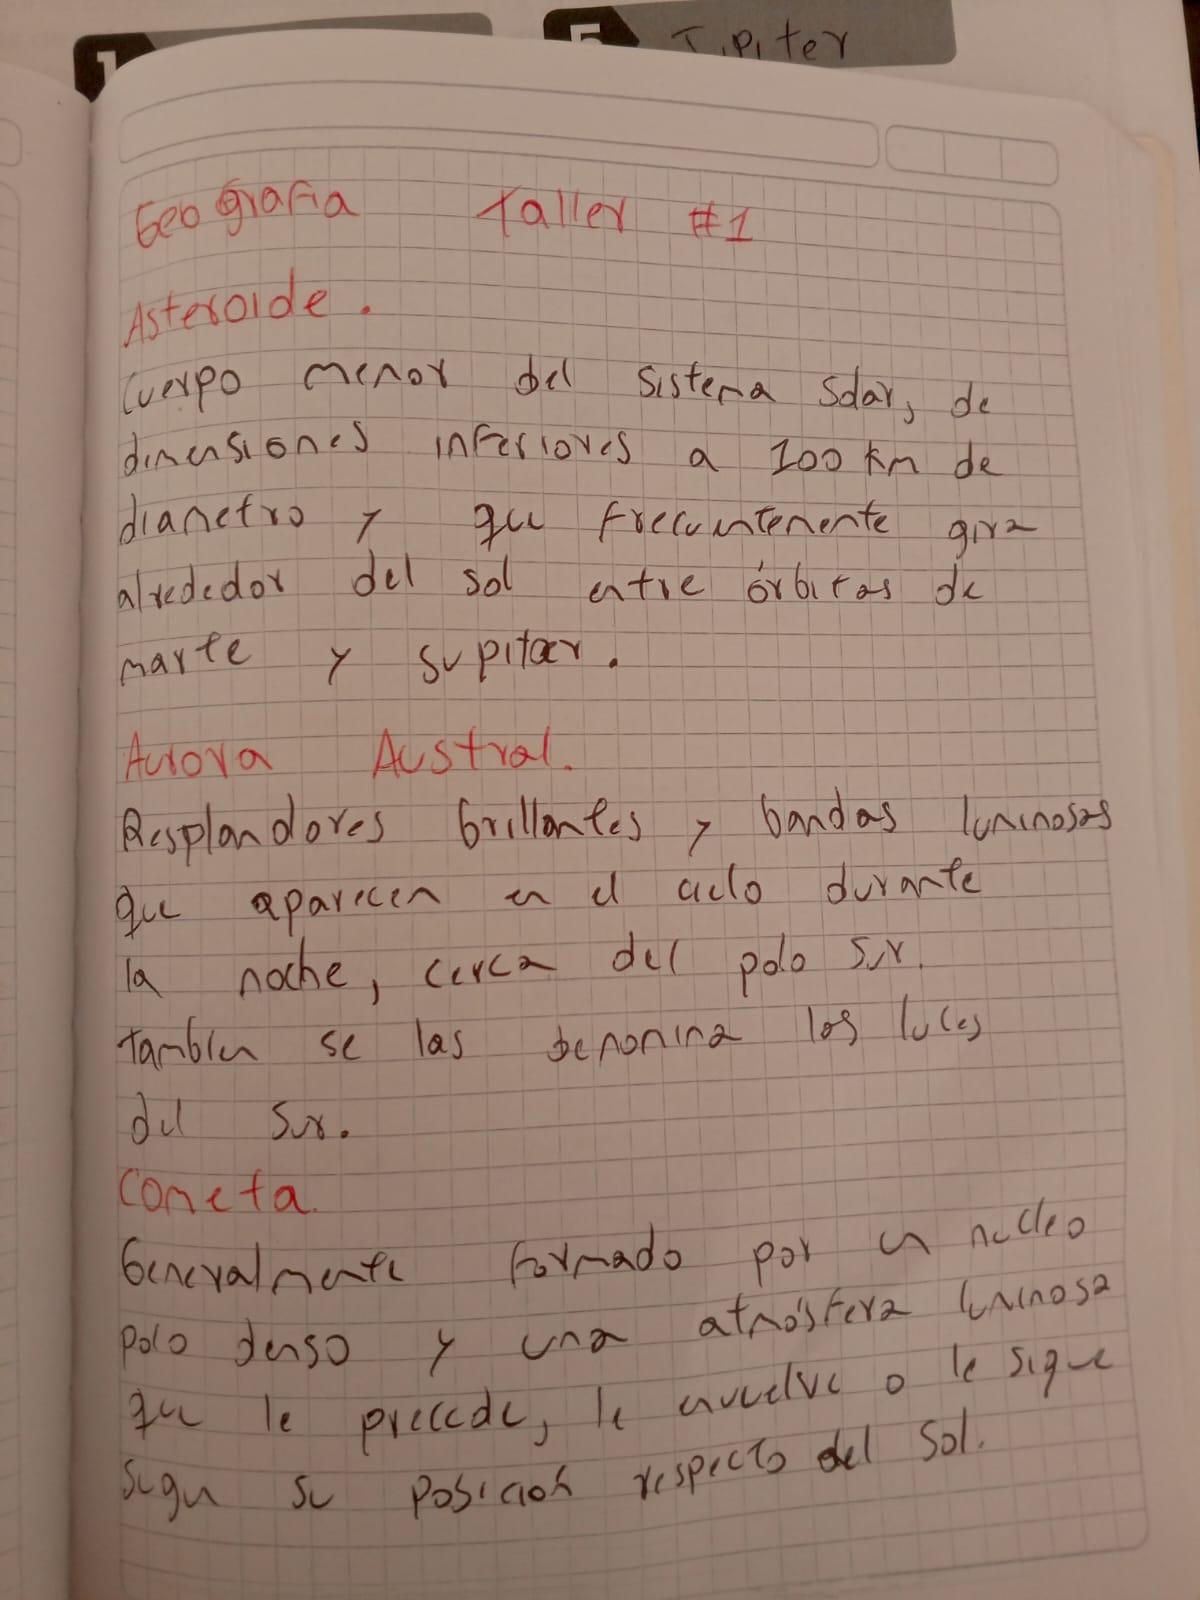 1
5 Jupiter
Geografia Taller #1
Asteroide.
Cuerpo menor del sistema Solar, de
dimensiones inferiores a 100 km de
diametro y que frecuntemente gira
alrededor del sol entre órbitas de
marte y Jupiter.
Aurora Austral.
Resplandores brillantes y bandas luminosas
que aparecen en el cielo durante
la noche, cerca del polo sur.
tambien se las denomina las luces
del sur.
Cometa.
Generalmente formado por un nucleo
poco denso y una atmósfera luminosa
que le precede, le envuelve o le sigue
segun su posición respecto del sol.